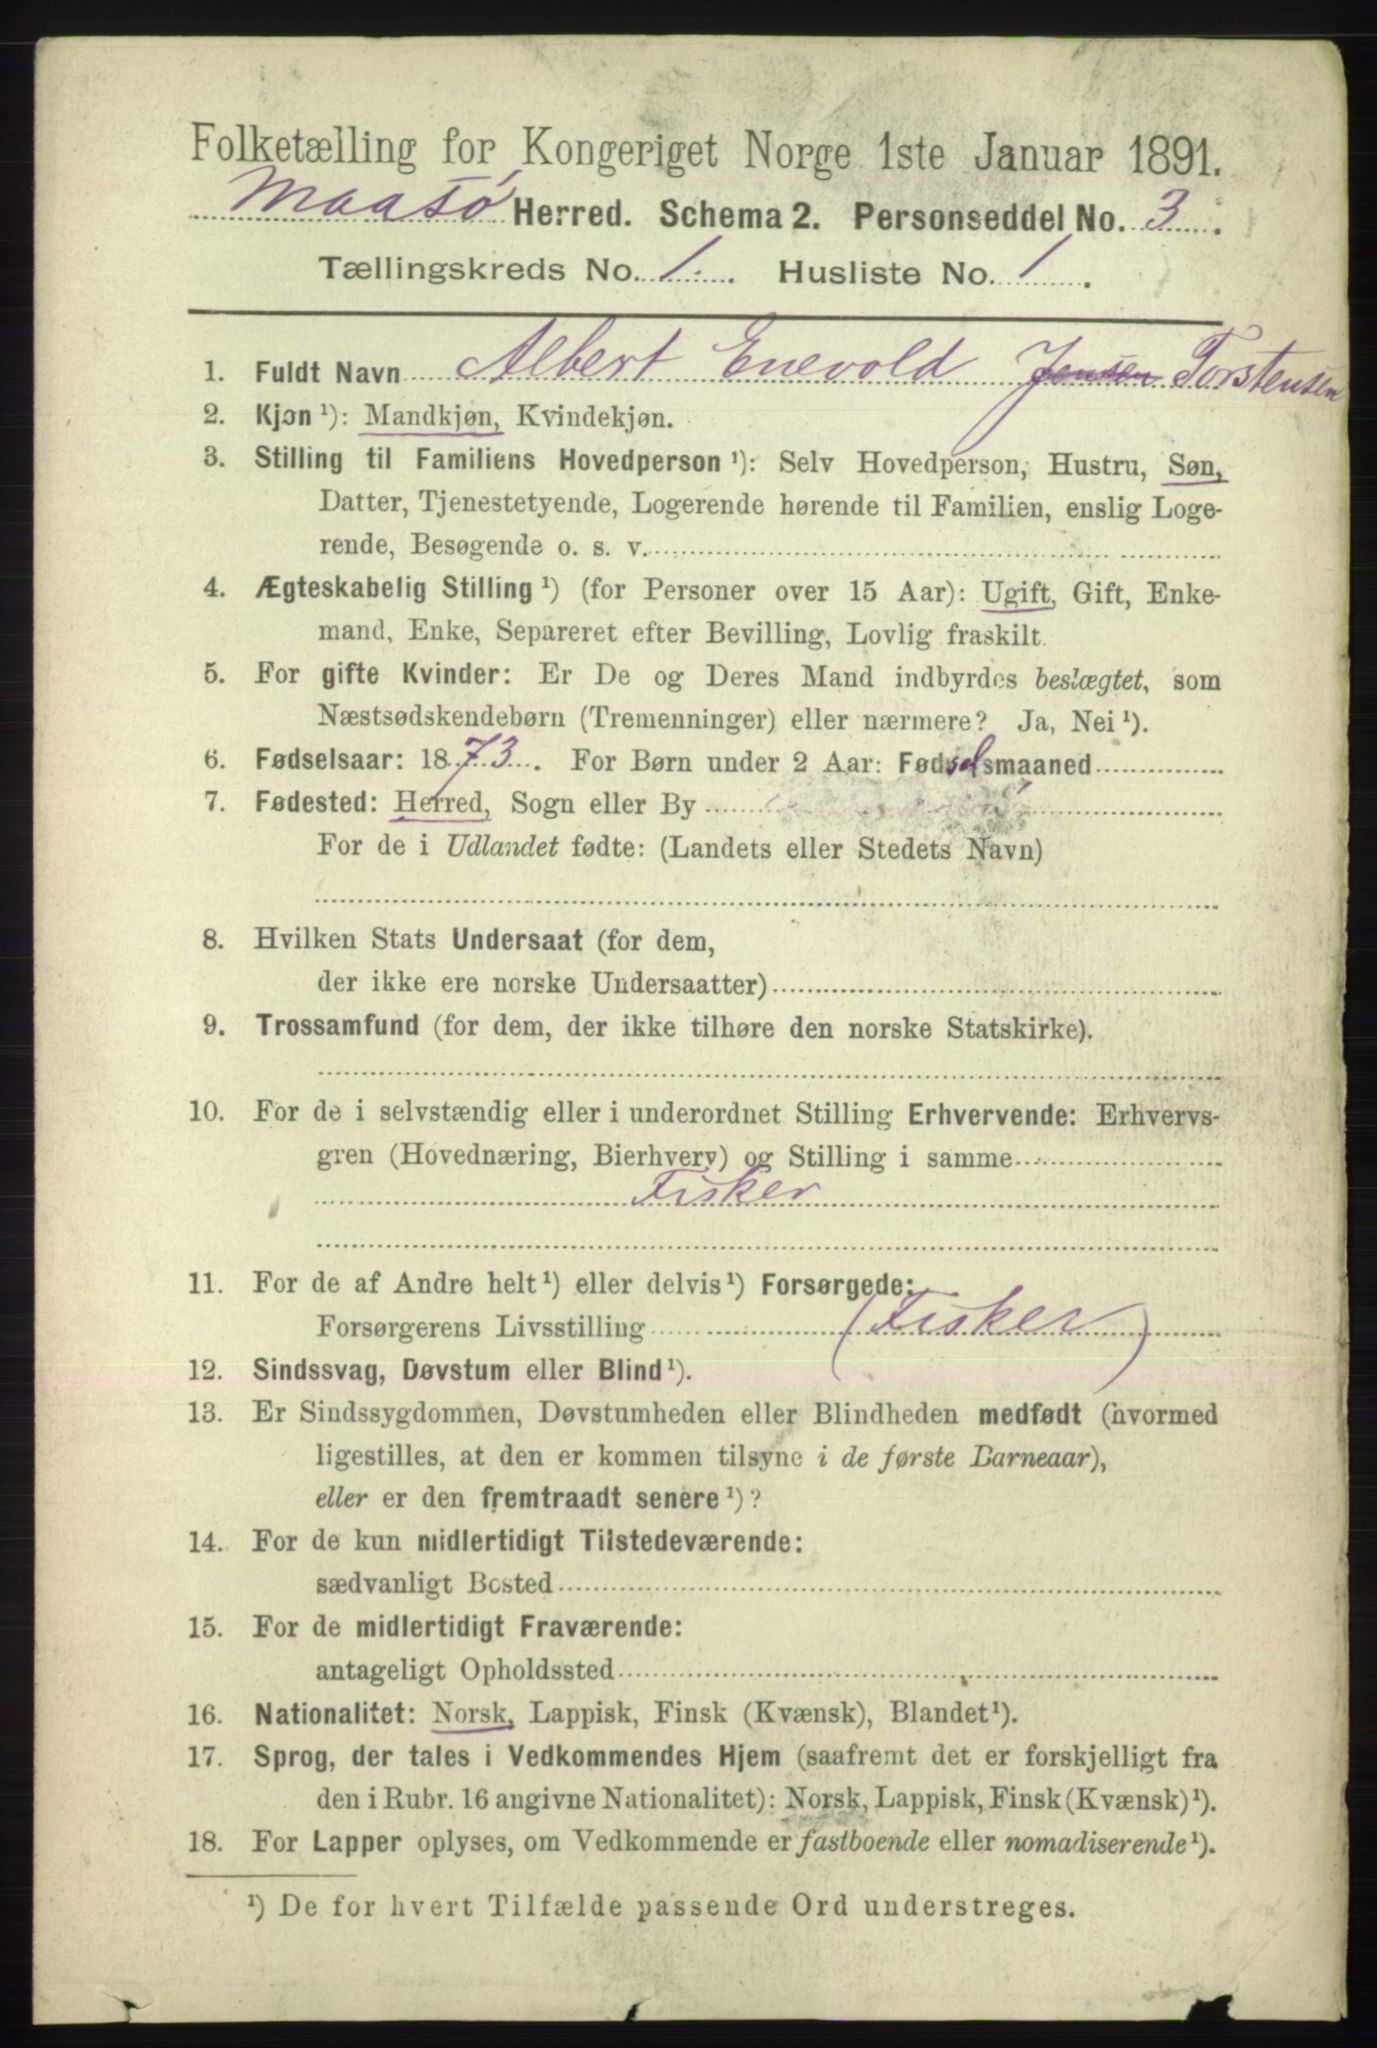 Folketælling for Kongeriget Norge 1ste Januar 1891.
Maasø Herred. Schema 2. Personseddel No. 3.
Tællingskreds No. 1. Husliste No. 1.
1. Fuldt Navn Albert Enevold Jensen Torstensen
2. Kjøn ¹): Mandkjøn, Kvindekjøn.
3. Stilling til Familiens Hovedperson ¹): Selv Hovedperson, Hustru, Søn,
Datter, Tjenestetyende, Logerende hørende til Familien, enslig Loge-
rende, Besøgende o. s. v.
4. Ægteskabelig Stilling ¹) (for Personer over 15 Aar): Ugift, Gift, Enke-
mand, Enke, Separeret efter Bevilling, Lovlig fraskilt.
5. For gifte Kvinder: Er De og Deres Mand indbyrdes beslægtet, som
Næstsødskendebørn (Tremenninger) eller nærmere? Ja, Nei ¹).
6. Fødselsaar: 1873. For Børn under 2 Aar: Fødselsmaaned
7. Fødested: Herred, Sogn eller By
For de i Udlandet fødte: (Landets eller Stedets Navn)
8. Hvilken Stats Undersaat (for dem,
der ikke ere norske Undersaatter)
9. Trossamfund (for dem, der ikke tilhøre den norske Statskirke).
10. For de i selvstændig eller i underordnet Stilling Erhvervende: Erhvervs-
gren (Hovednæring, Bierhverv) og Stilling i samme
Fisker
11. For de af Andre helt ¹) eller delvis ¹) Forsørgede:
Forsørgerens Livsstilling (Fisker)
12. Sindssvag, Døvstum eller Blind ¹).
13. Er Sindssygdommen, Døvstumheden eller Blindheden medfødt (hvormed
ligestilles, at den er kommen tilsyne i de første Barneaar),
eller er den fremtraadt senere ¹)?
14. For de kun midlertidigt Tilstedeværende:
sædvanligt Bosted
15. For de midlertidigt Fraværende:
antageligt Opholdssted
16. Nationalitet: Norsk, Lappisk, Finsk (Kvænsk), Blandet ¹).
17. Sprog, der tales i Vedkommendes Hjem (saafremt det er forskjelligt fra
den i Rubr. 16 angivne Nationalitet): Norsk, Lappisk, Finsk (Kvænsk) ¹).
18. For Lapper oplyses, om Vedkommende er fastboende eller nomadiserende ¹).
¹) De for hvert Tilfælde passende Ord understreges.